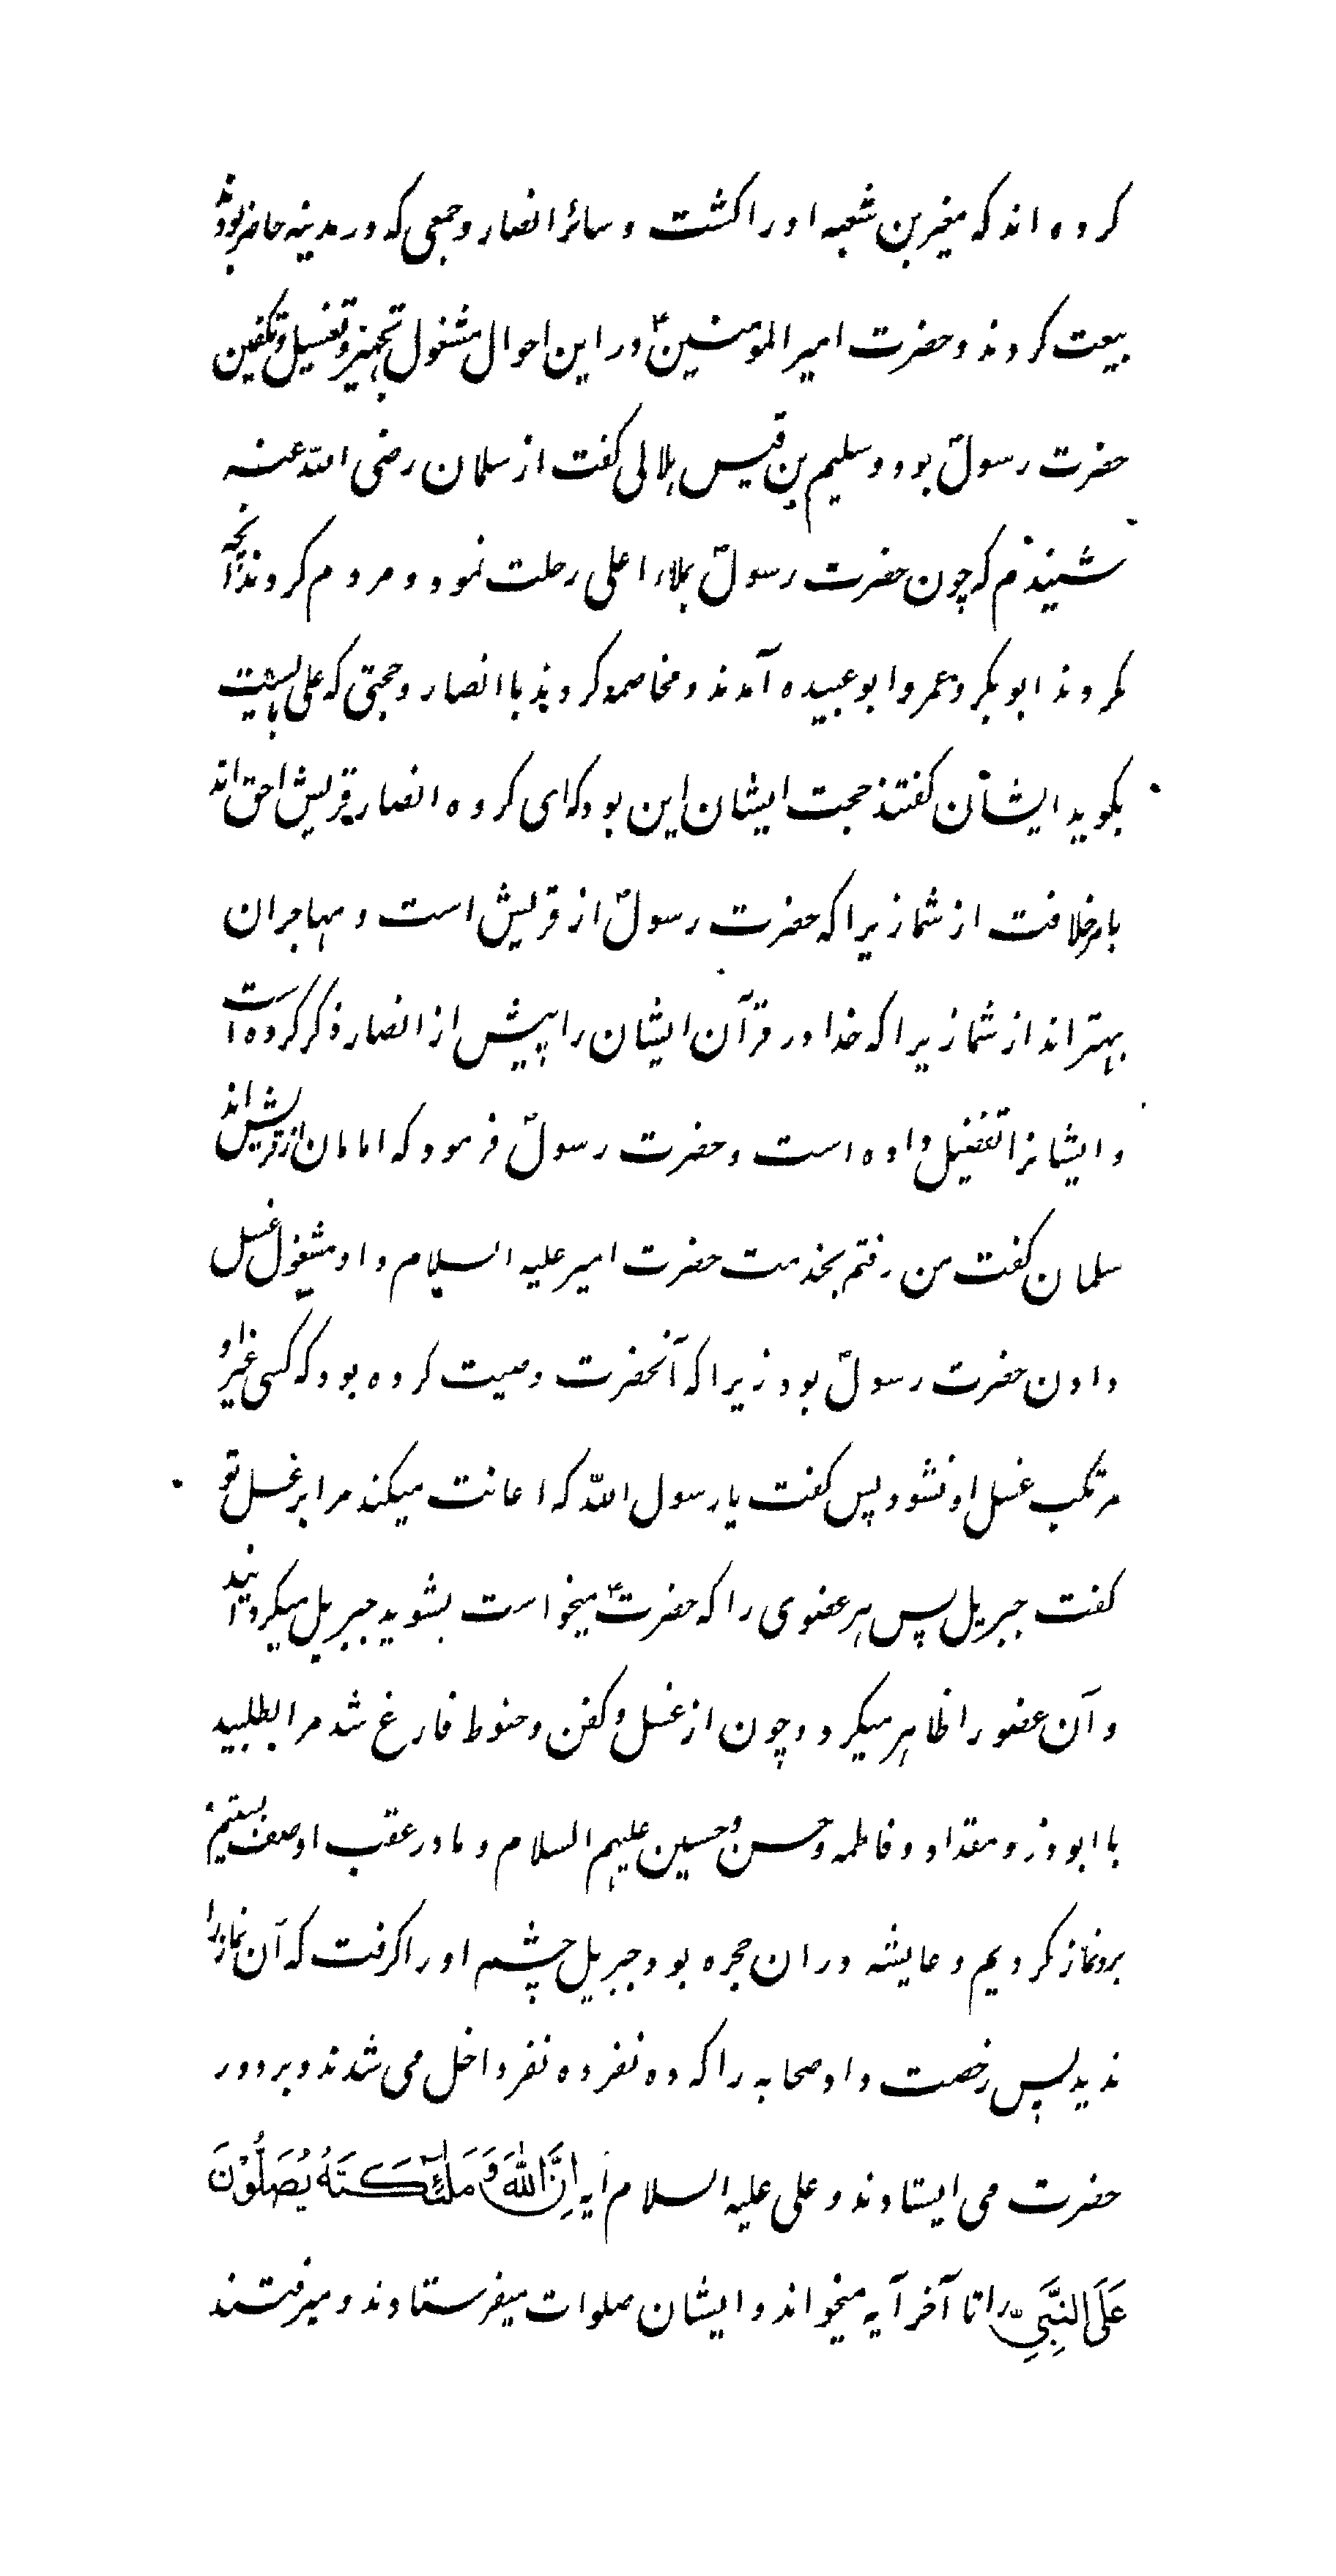 کرده اند که مغیر بن شعبه او را کشت و سائر انصار و جمعی که در مدینه حاضر بودند
بیعت کردند و حضرت امیر المومنینؑ در این احوال مشغول تجهیز و تغسیل و تکفین
حضرت رسولؐ بود و سلیم بن قیس هلالی گفت از سلمان رضی الله عنه
شنیدم که چون حضرت رسولؐ بملاء اعلی رحلت نمود و مردم کردند آنچه
کردند ابو بکر و عمر و ابو عبیده آمدند و مخاصمه کردند با انصار و حجتی که علی بایست
بگوید ایشان گفتند حجت ایشان این بود که ای گروه انصار قریش احق اند
بامر خلافت از شما زیرا که حضرت رسولؐ از قریش است و مهاجران
بهتر اند از شما زیرا که خدا در قرآن ایشان را پیش از انصار ذکر کرده است
و ایشانرا تفضیل داده است و حضرت رسولؐ فرمود که امامان از قریش اند
سلمان گفت من رفتم بخدمت حضرت امیر علیه السلام و او مشغول غسل
دادن حضرت رسولؐ بود زیرا که آنحضرت وصیت کرده بود که کسی غیر او
مرتکب غسل او نشود پس گفت یا رسول الله که اعانت میکند مرا بر غسل تو
گفت جبریل پس هر عضوی را که حضرتؑ میخواست بشوید جبریل میگردانید
و آن عضو را ظاهر میکرد و چون از غسل و کفن و حنوط فارغ شد مرا طلبید
با ابوذر و مقداد و فاطمه و حسن و حسین علیهم السلام و ما در عقب او صف بستیم
برو نماز کردیم و عایشه در ان حجره بود جبریل چشم او را گرفت که آن نماز را
ندید پس رخصت داد صحابه را که ده نفر ده نفر داخل می شدند و بر دور
حضرت می ایستادند و علی علیه السلام آیه اِنَّ اللهَ وَ مَلٰئِکَتَهُ یُصَلُّوْنَ
عَلَی النَّبِیِّ را تا آخر آیه میخواند و ایشان صلوات میفرستادند و میرفتند